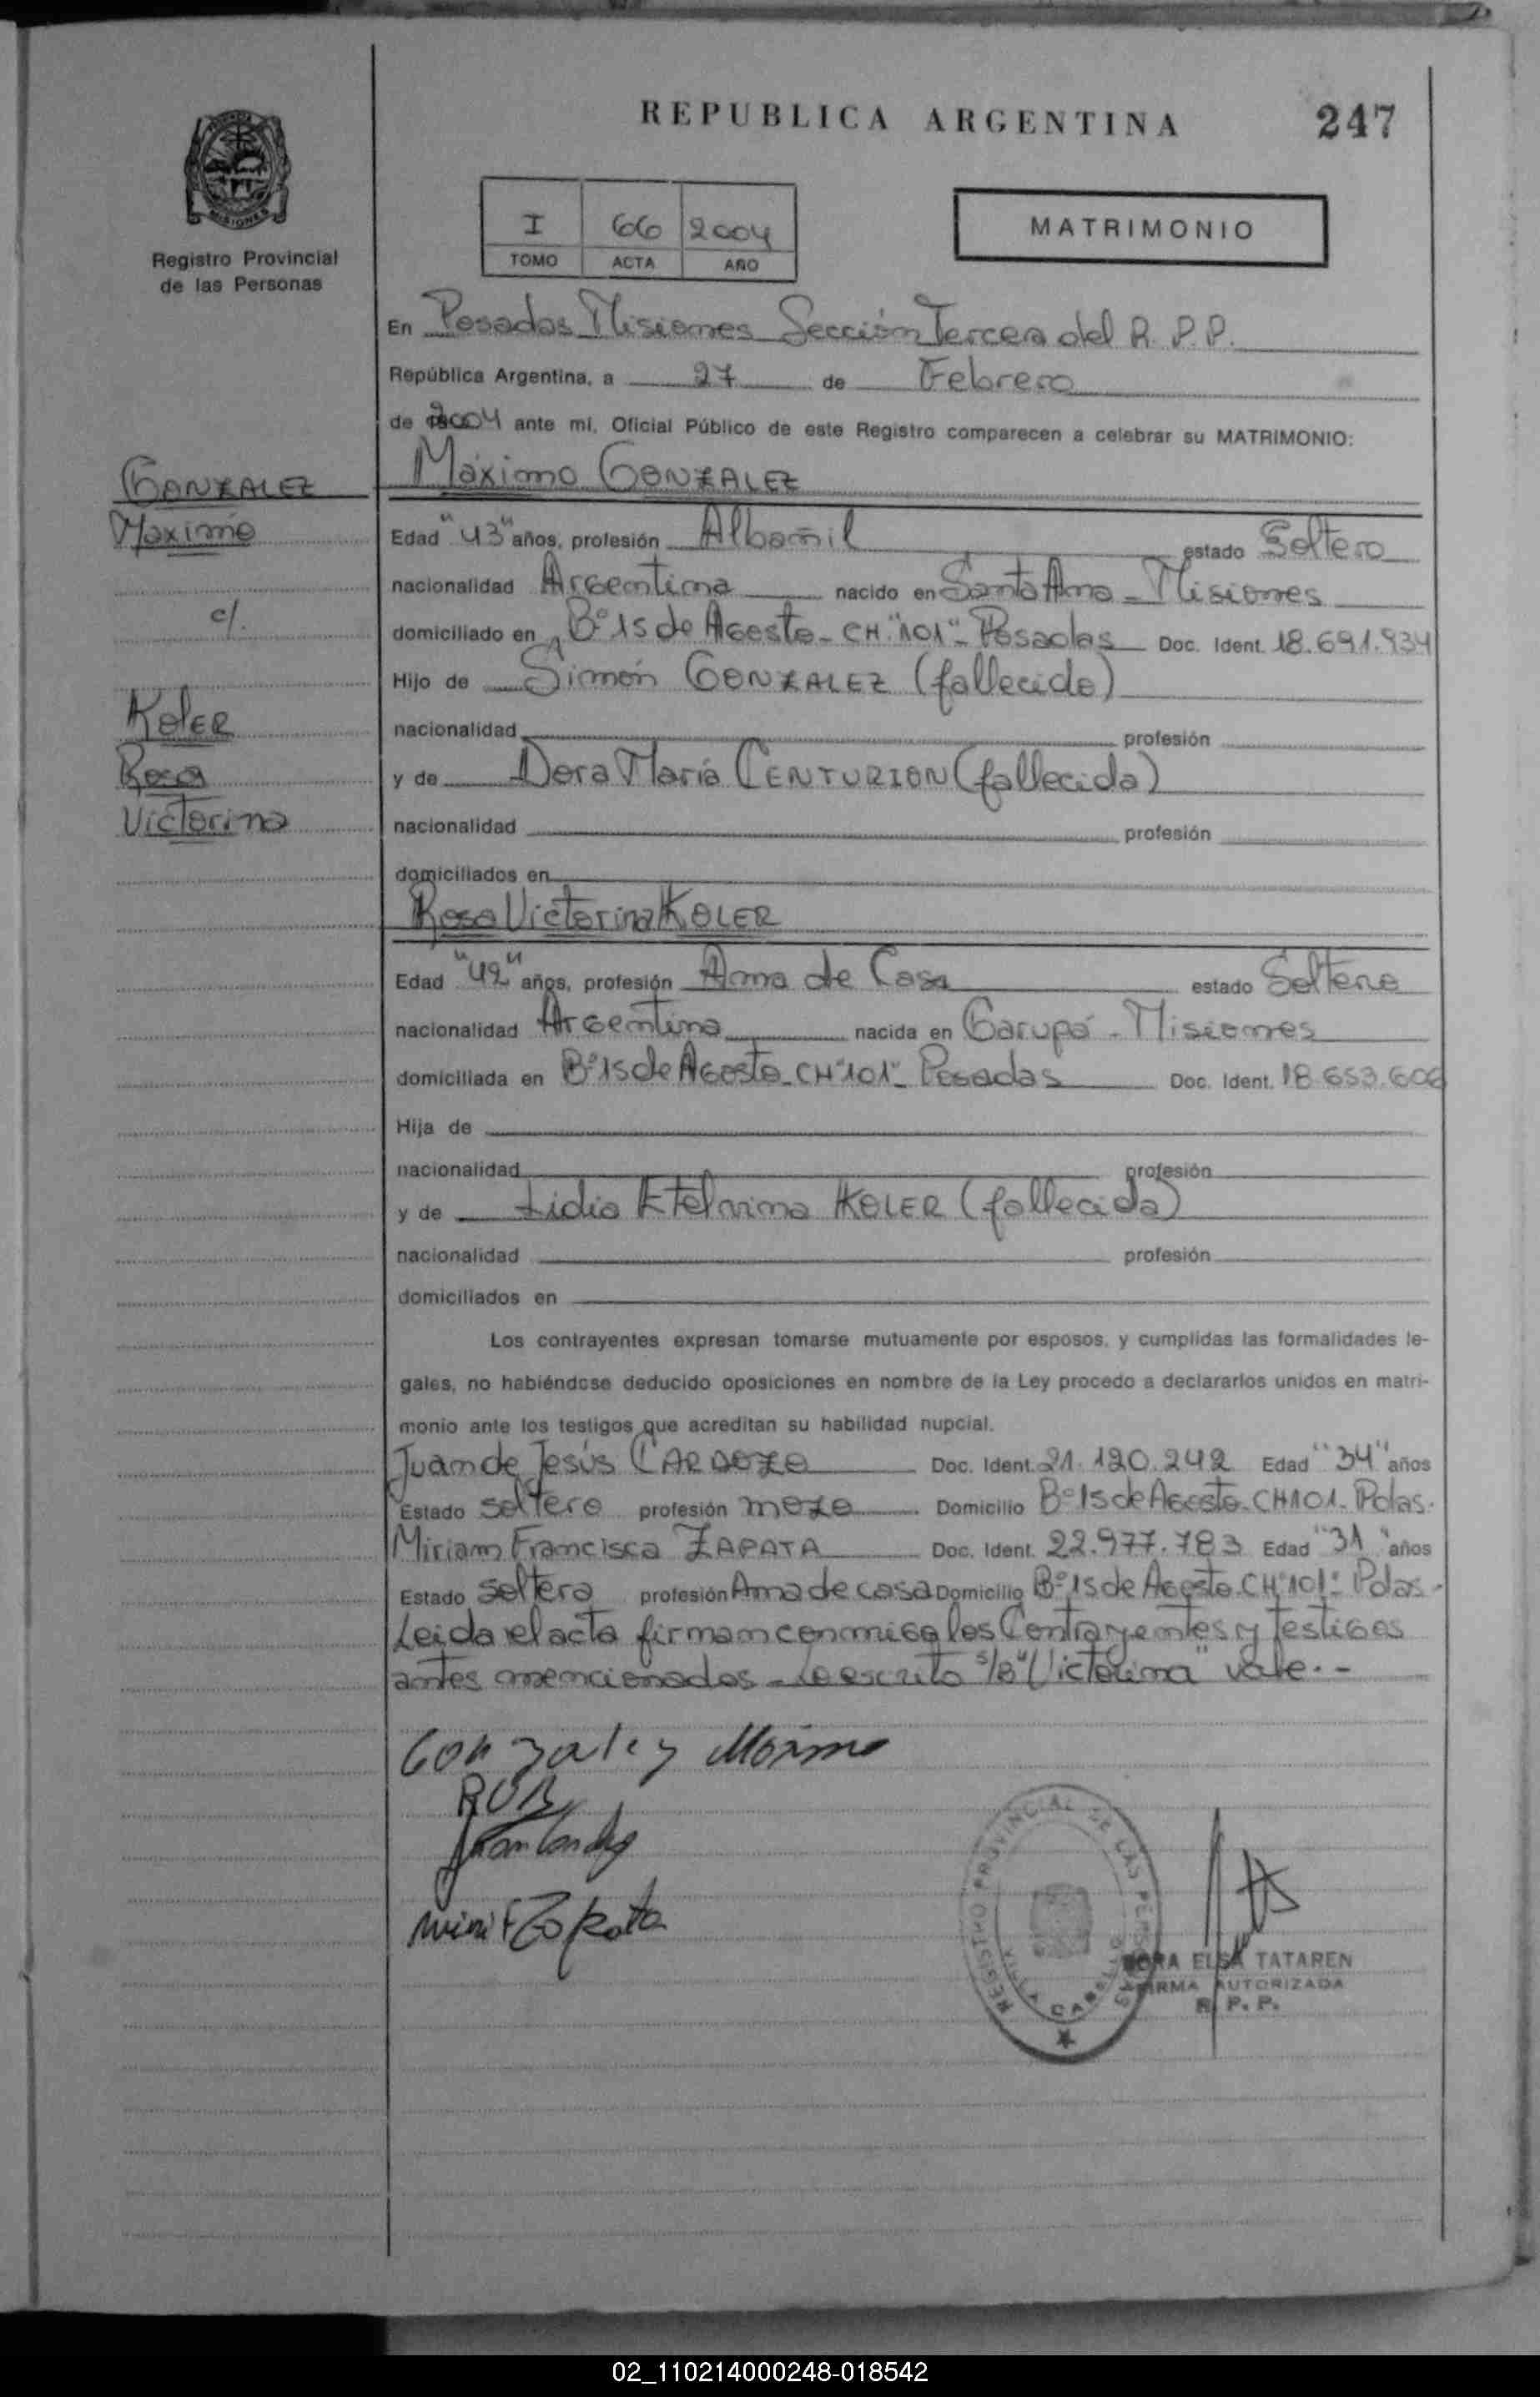 REPUBLICA ARGENTINA
247
MISIONES
Registro Provincial
de las Personas
I 66 2004
TOMO ACTA AÑO
MATRIMONIO
En Posadas Misiones Sección Tercera del R. P. P.
República Argentina, a 27 de Febrero
de 2004 ante mi, Oficial Público de este Registro comparecen a celebrar su MATRIMONIO:
GONZALEZ
Maximo
c/.
KOLER
Rosa
Victorina
Máximo GONZALEZ
Edad "43" años, profesión Albañil estado Soltero
nacionalidad Argentina nacido en Santa Ana - Misiones
domiciliado en Bº 15 de Agosto - CH. "101" - Posadas Doc. Ident. 18.691.934
Hijo de Simón GONZALEZ (fallecido)
nacionalidad profesión
y de Dora María CENTURION (fallecida)
nacionalidad profesión
domiciliados en
Rosa Victorina KOLER
Edad "42" años, profesión Ama de Casa estado Soltera
nacionalidad Argentina nacida en Garupá - Misiones
domiciliada en Bº 15 de Agosto - CH "101" - Posadas Doc. Ident. 18.653.606
Hija de
nacionalidad profesión
y de Lidia Etelvina KOLER (fallecida)
nacionalidad profesión
domiciliados en
Los contrayentes expresan tomarse mutuamente por esposos, y cumplidas las formalidades le-
gales, no habiéndose deducido oposiciones en nombre de la Ley procedo a declararlos unidos en matri-
monio ante los testigos que acreditan su habilidad nupcial.
Juan de Jesús CARDOZO Doc. Ident. 21.120.242 Edad "34" años
Estado soltero profesión mozo Domicilio Bº 15 de Agosto - CH 101 - Pdas.
Miriam Francisca ZAPATA Doc. Ident. 22.977.783 Edad "31" años
Estado soltera profesión Ama de casa Domicilio Bº 15 de Agosto - CH "101" - Pdas.
Leida el acta firman conmigo los Contrayentes y testigos
antes mencionados - Lo escrito s/b "Victorina" vale.-
Gonzalez Máximo
REGISTRO PROVINCIAL DE LAS PERSONAS
ELSA TATAREN
FIRMA AUTORIZADA
R. P. P.
02_110214000248-018542